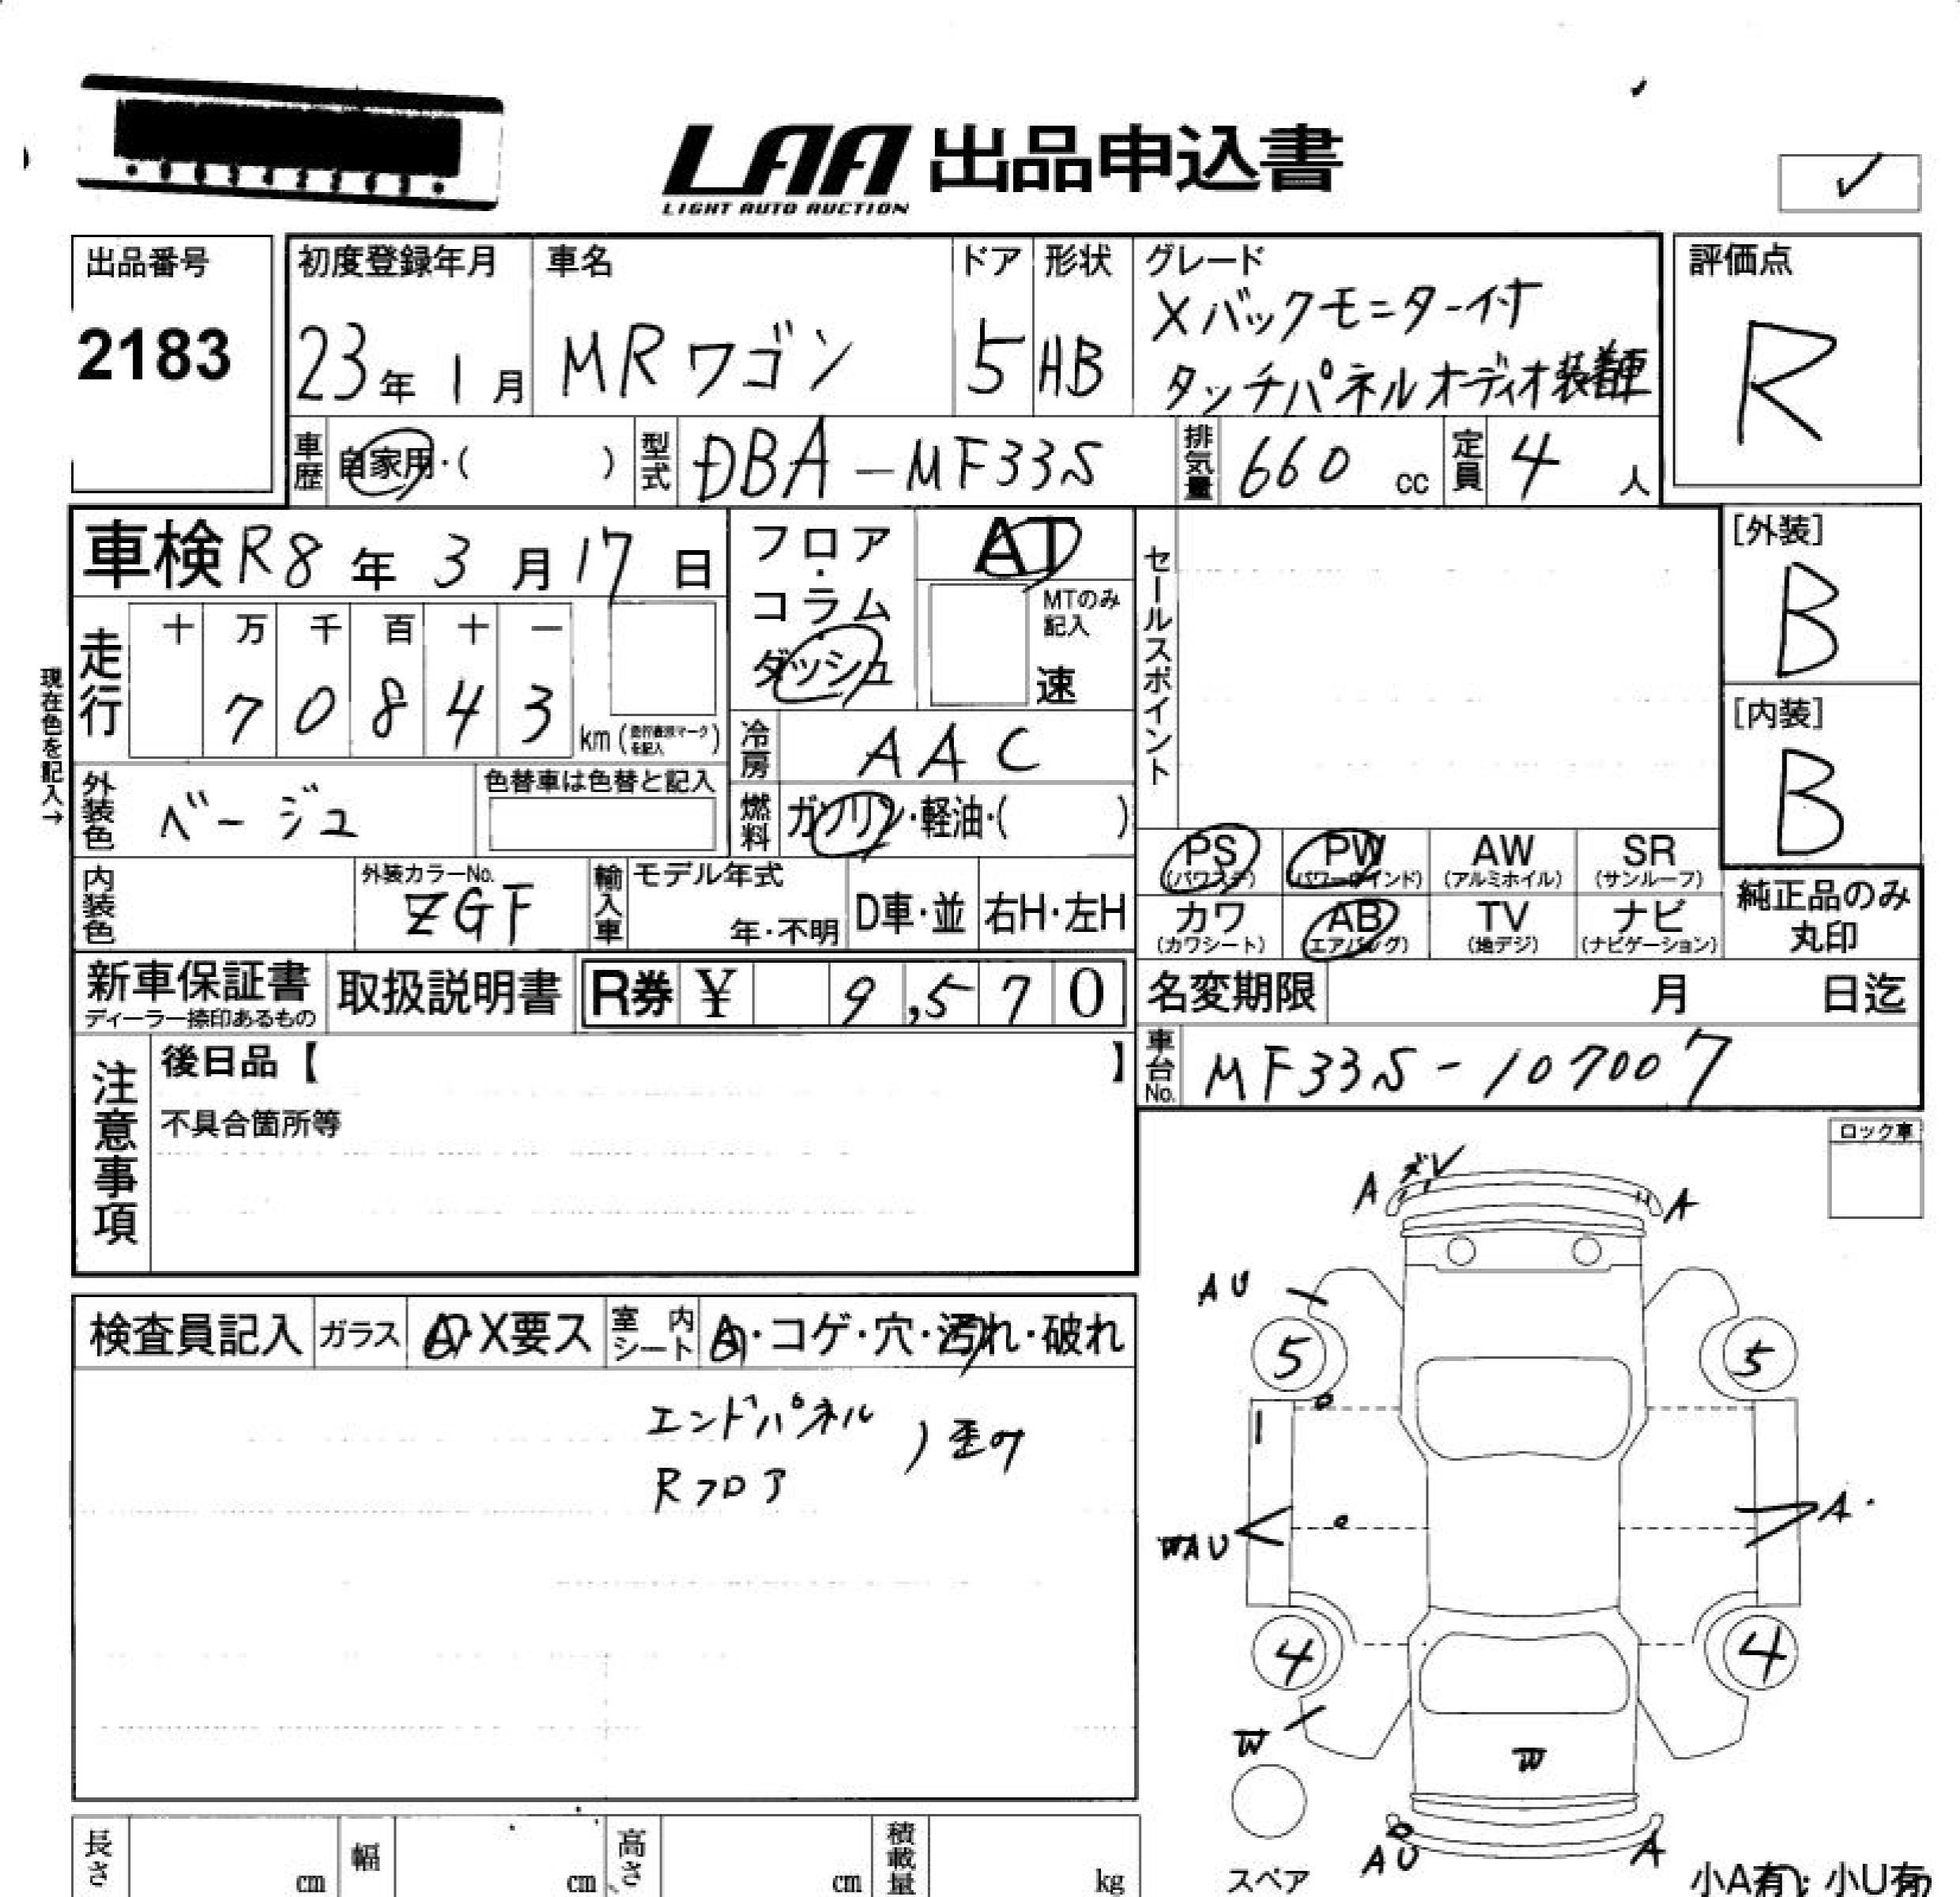 LAA 出品申込書
LIGHT AUTO AUCTION
出品番号
2183
初度登録年月
23年1月
車名
MRワゴン
ドア
5
形状
HB
グレード
Xバックモニター付
タッチパネルオーディオ装着車
評価点
R
車歴
自家用・( )
型式
DBA-MF33S
排気量
660 cc
定員
4 人
車検 R8年3月17日
フロア・コラム・ダッシュ
AT
MTのみ記入
速
セールスポイント
[外装]
B
[内装]
B
現在色を記入→
走行
十 万 千 百 十 一
7 0 8 4 3
km (走行直読マークを記入)
冷房
AAC
外装色
ベージュ
色替車は色替と記入
燃料
ガソリン・軽油・( )
内装色
外装カラーNo.
ZGF
輸入車
モデル年式
年・不明
D車・並
右H・左H
PS (パワステ)
PW (パワーウインド)
AW (アルミホイル)
SR (サンルーフ)
カワ (カワシート)
AB (エアバッグ)
TV (地デジ)
ナビ (ナビゲーション)
純正品のみ丸印
新車保証書
ディーラー捺印あるもの
取扱説明書
R券 ¥ 9,570
名変期限
月 日迄
車台No.
MF33S-107007
注意事項
後日品【 】
不具合箇所等
ロック車
検査員記入
ガラス
A・X要ス
室内シート
A・コゲ・穴・汚れ・破れ
エンドパネル
Rフロア
)歪み
A
A
AU
5
5
WAU
A
4
4
W
W
AU
A
スペア
小A有・小U有
長さ
cm
幅
cm
高さ
cm
積載量
kg